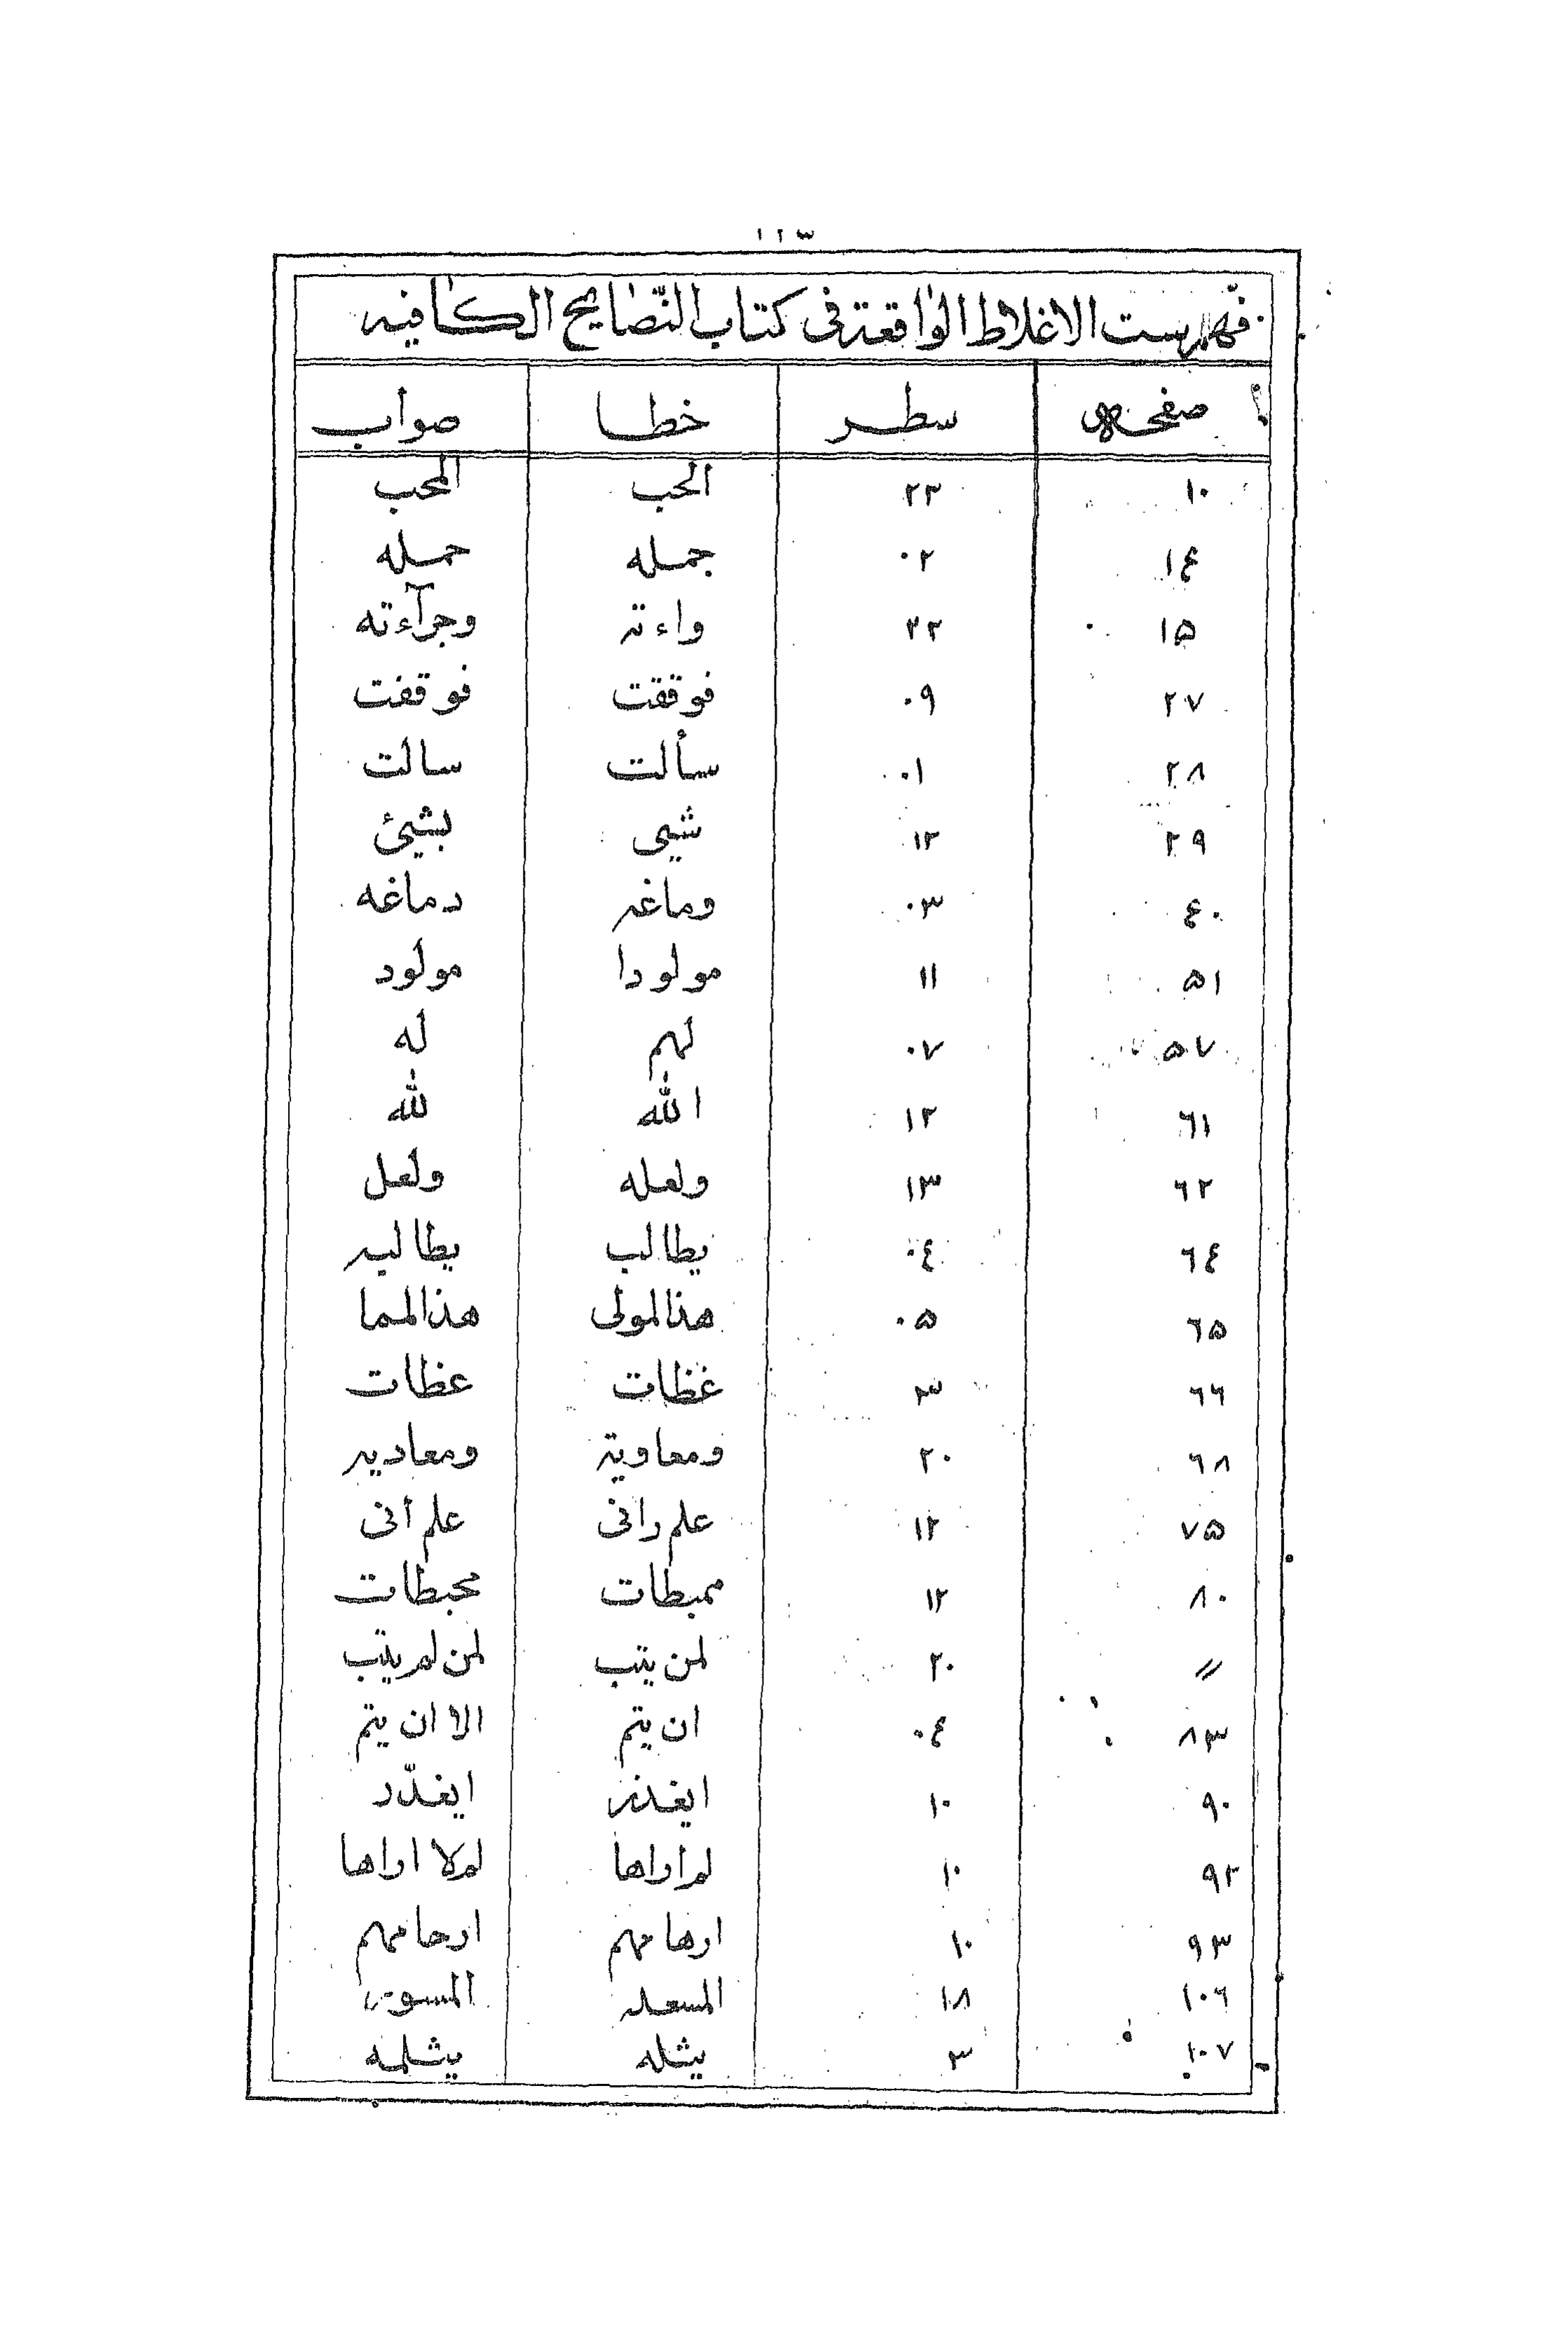 ١١٣
فهرست الاغلاط الواقعة فى كتاب النّصايح الكافيه
صفحه سطر خطا صواب
١٠ ٢٣ الحب المحب
١٤ ٠٢ جمله حمله
١٥ ٢٢ واءته وجرآءته
٢٧ ٠٩ فوققت فوقفت
٢٨ ٠١ سألت سالت
٢٩ ١٢ شيى بشيئ
٤٠ ٠٣ وماغه دماغه
٥١ ١١ مولودا مولود
٥٧ ٠٧ لهم له
٦١ ١٢ الله لله
٦٢ ١٣ ولعله ولعل
٦٤ ٠٤ يطالب يطاليه
٦٥ ٠٥ هذالمولى هذالمما
٦٦ ٣ غظات عظات
٦٨ ٢٠ ومعاوية ومعاديه
٧٥ ١٢ علم رانى علم أنى
٨٠ ١٢ ممبطات محبطات
〃 ٢٠ لمن يتب لمن لم يتب
٨٣ ٠٤ ان يتم الا ان يتم
٩٠ ١٠ ايغذر ايغدّر
٩٢ ١٠ لم اراها لم لا اراها
٩٣ ١٠ ارهامهم ارحامهم
١٠٦ ١٨
١٠٧ ٣ يثله يثلمه